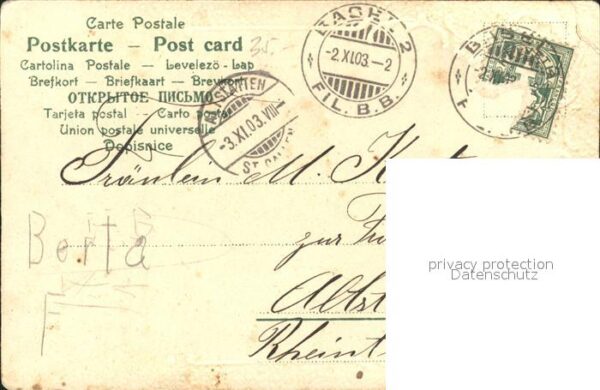 Carte Postale
Postkarte – Post card
Cartolina Postale – Levelező-Lap
Brefkort – Briefkaart – Brevkort
ОТКРЫТОЕ ПИСЬМО
Tarjeta postal – Carte postale
Union postale universelle
Dopisnice
35.-
BASEL 2
-2.XI.03.-2
FIL. B.B.
ALTSTÄTTEN
-3.XI.03.VIII
ST. GALLEN
BASEL
Fräulein M. K
zur
Altst
Rheint
Berta
F
privacy protection
Datenschutz